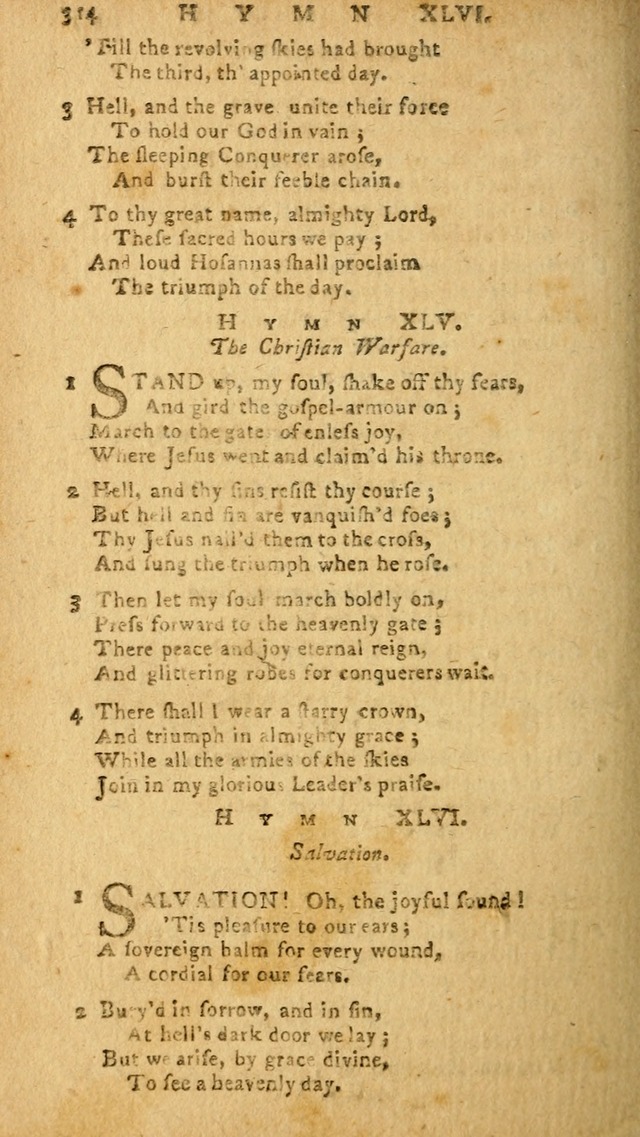 314 H Y M N XLVI.
'Till the revolving ſkies had brought
The third, th' appointed day.
3 Hell, and the grave unite their force
To hold our God in vain ;
The ſleeping Conquerer aroſe,
And burſt their feeble chain.
4 To thy great name, almighty Lord,
Theſe ſacred hours we pay ;
And loud Hoſannas ſhall proclaim
The triumph of the day.
H Y M N XLV.
The Chriſtian Warfare.
1 STAND up, my ſoul, ſhake off thy fears,
And gird the goſpel-armour on ;
March to the gate of enleſs joy,
Where Jeſus went and claim'd his throne.
2 Hell, and thy ſins reſiſt thy courſe ;
But hell and ſin are vanquiſh'd foes ;
Thy Jeſus nail'd them to the croſs,
And ſung the triumph when he roſe.
3 Then let my ſoul march boldly on,
Preſs forward to the heavenly gate ;
There peace and joy eternal reign,
And glittering robes for conquerers wait.
4 There ſhall I wear a ſtarry crown,
And triumph in almighty grace ;
While all the armies of the ſkies
Join in my glorious Leader's praiſe.
H Y M N XLVI.
Salvation.
1 SALVATION! Oh, the joyful ſound !
'Tis pleaſure to our ears ;
A ſovereign balm for every wound,
A cordial for our fears.
2 Bury'd in ſorrow, and in ſin,
At hell's dark door we lay ;
But we ariſe, by grace divine,
To ſee a heavenly day.